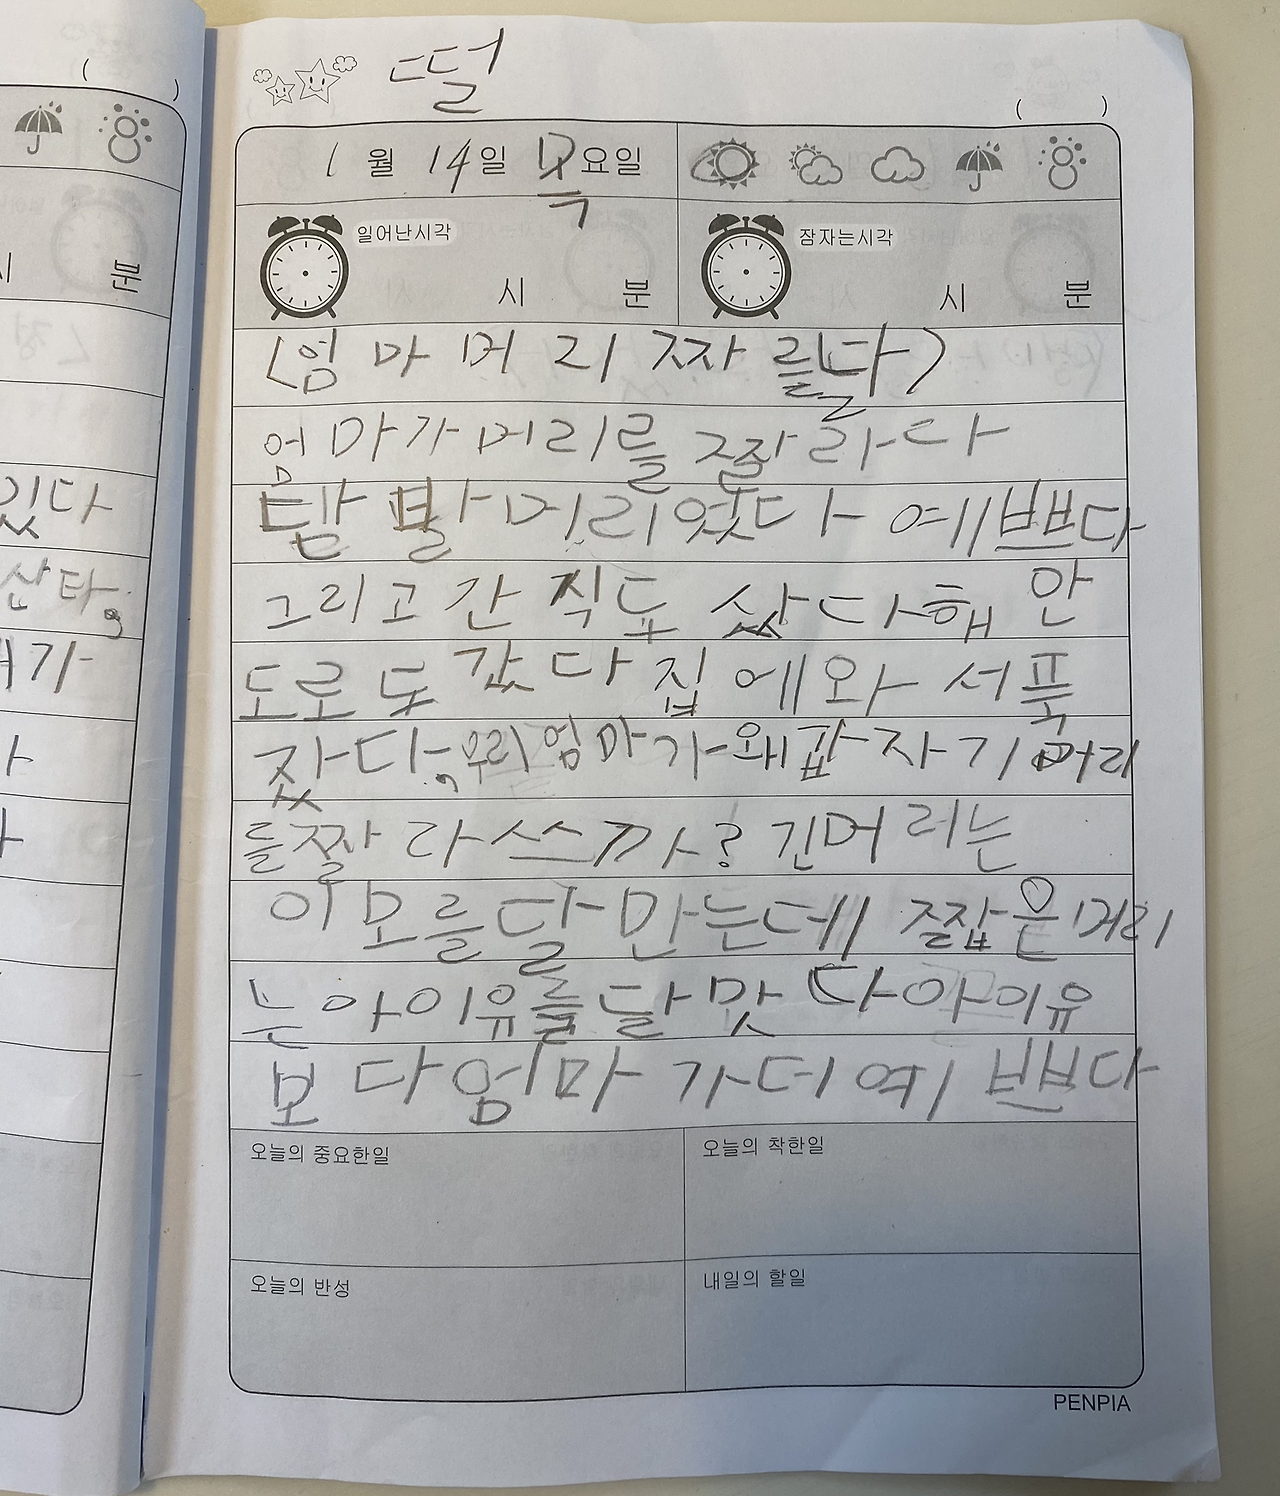 떨
( )
( )
1 월 14 일 목 요일
일어난시각
시 분
잠자는시각
시 분
<엄마머리짜를날>
엄마가머리를짤라다
담발머리였다 예쁘다
그리고 간식도 샀다해안
도로도 갔다 집에와서푹
잤다, 우리엄마가왜깝자기머리
를짤라쓰까? 긴머리는
이모를달만는데 짧은머리
는아이유를달맛다아이유
보다엄마가더예쁘다
오늘의 중요한일
오늘의 착한일
오늘의 반성
내일의 할일
PENPIA
분
있다
산타,